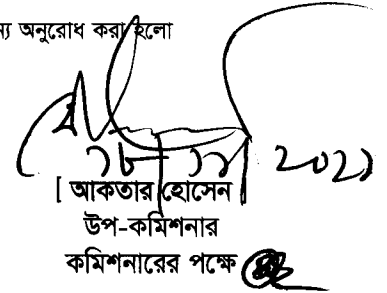 ন্য অনুরোধ করা হলো
১৮ ১১ ২০২১
[ আকতার হোসেন ]
উপ-কমিশনার
কমিশনারের পক্ষে